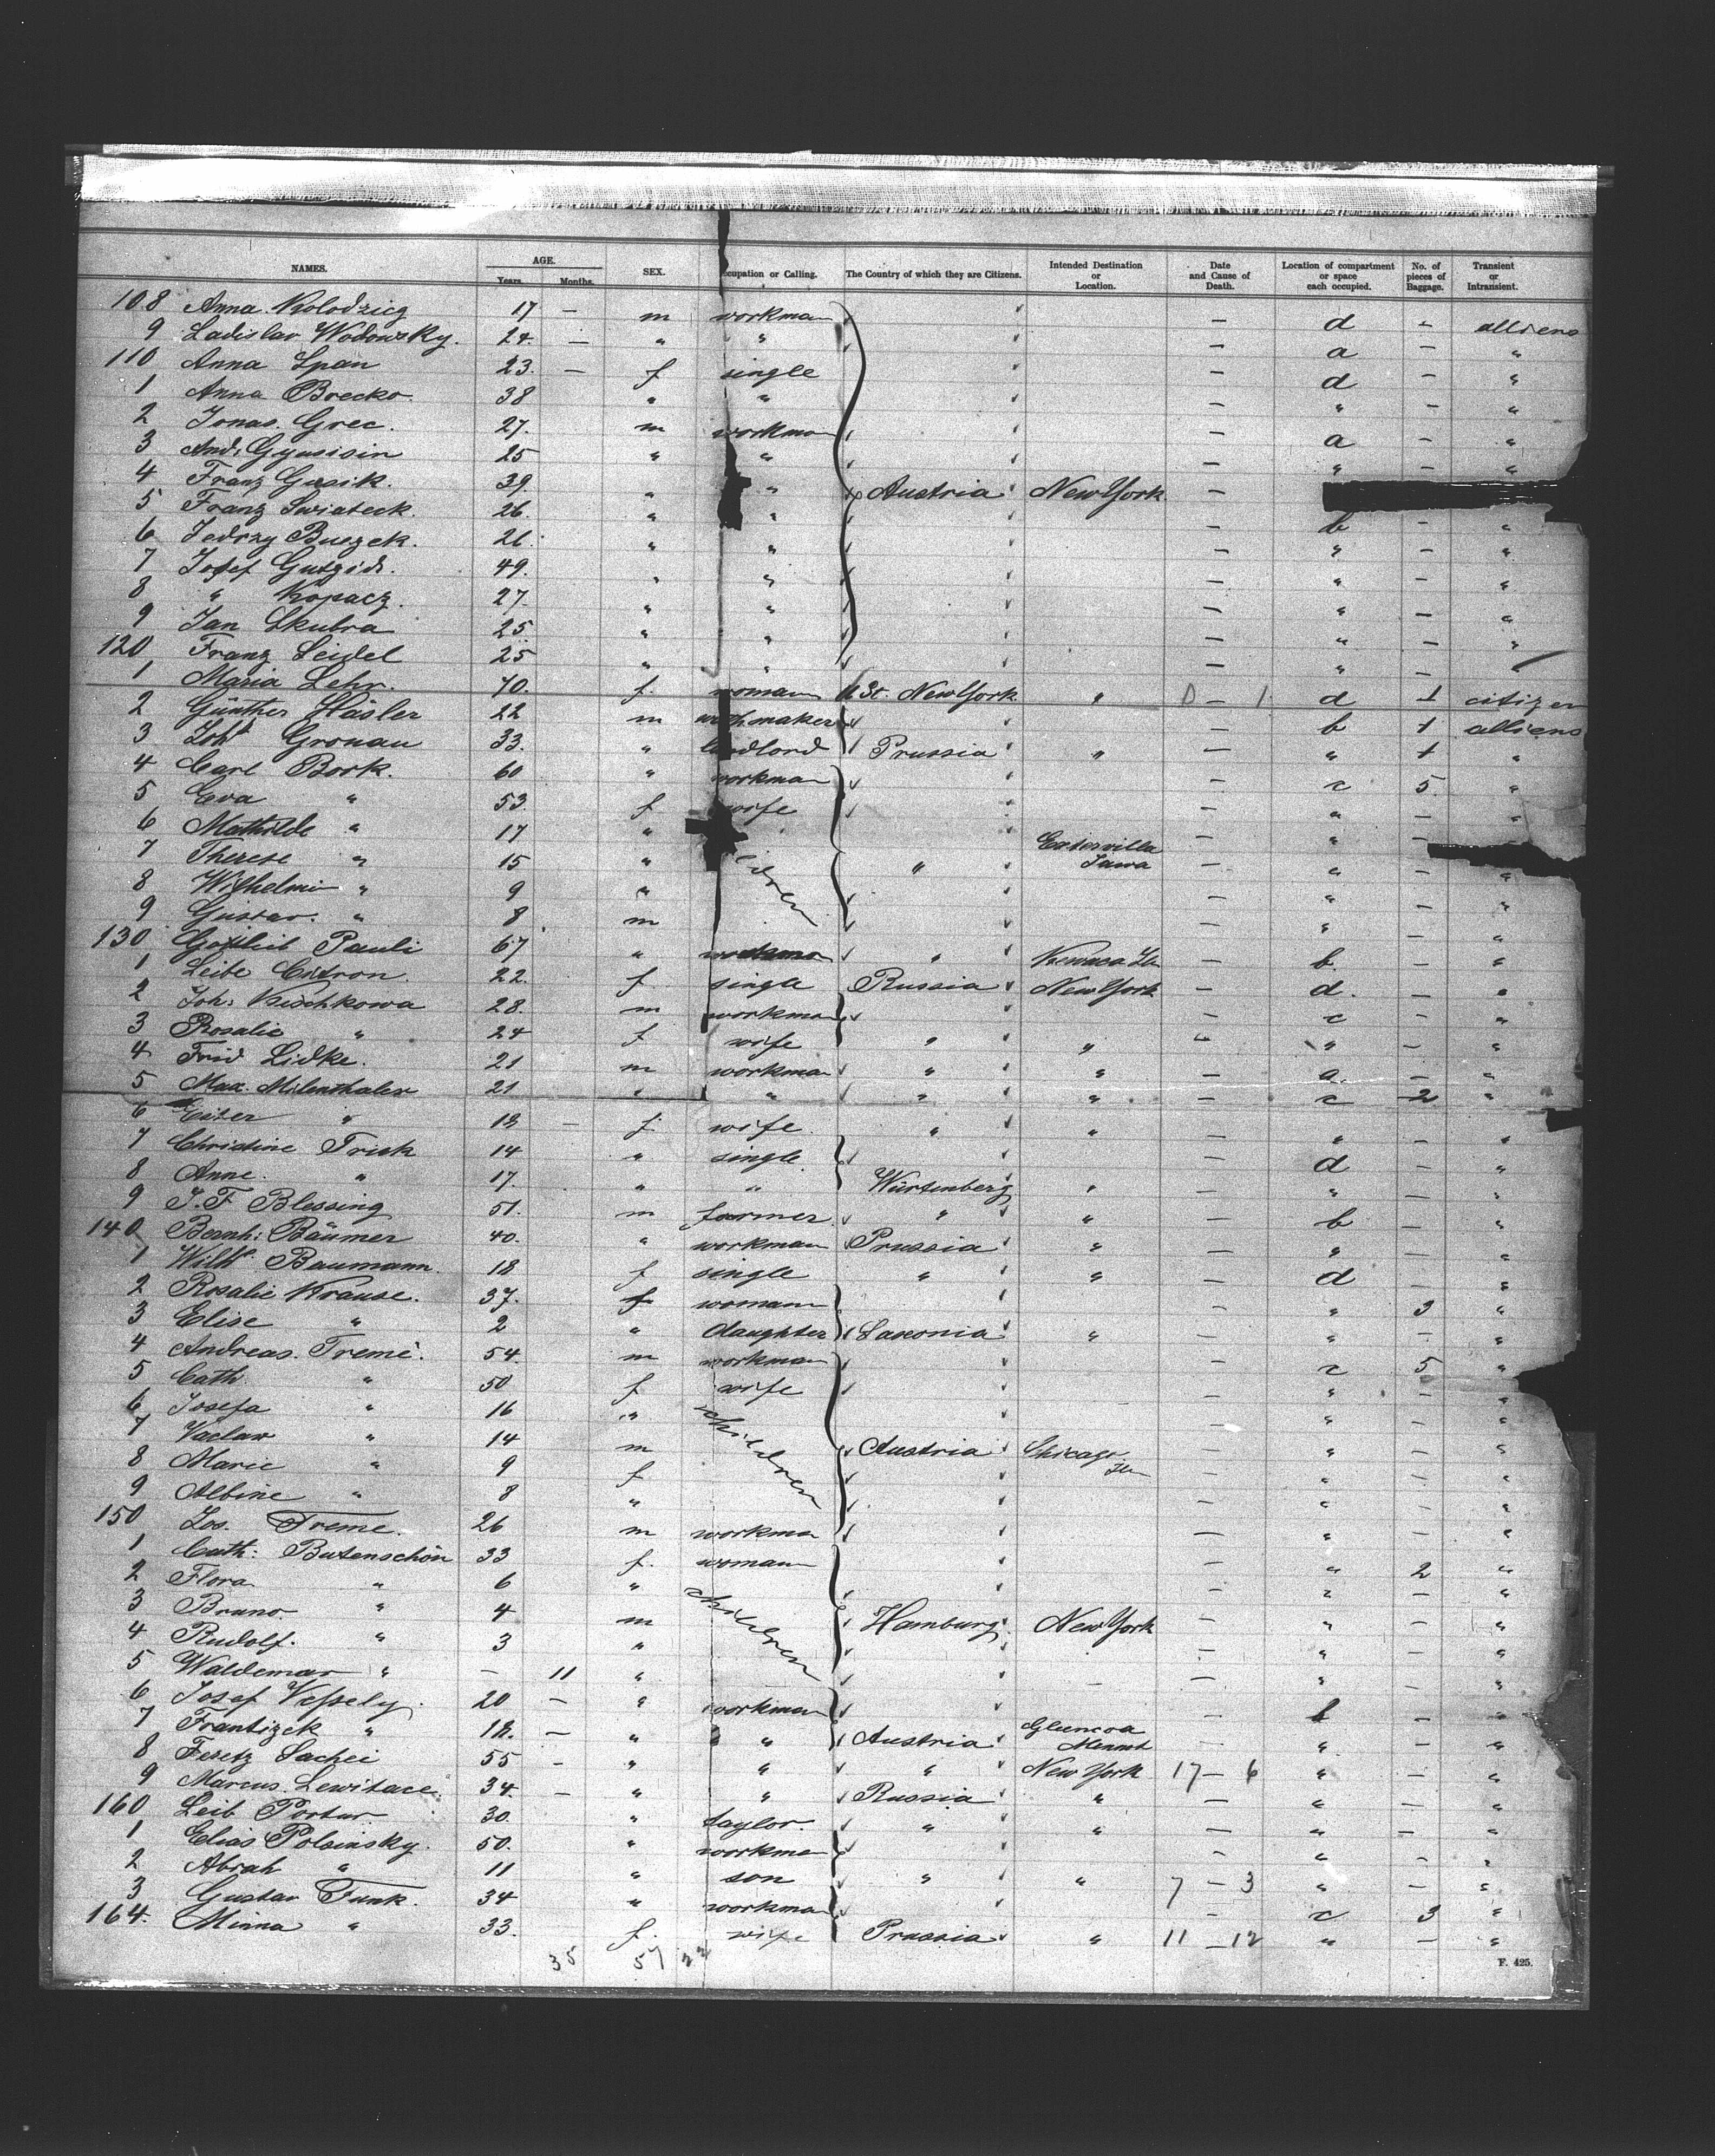 NAMES. AGE. Years. Months. SEX. cupation or Calling. The Country of which they are Citizens. Intended Destination or Location. Date and Cause of Death. Location of compartment or space each occupied. No. of pieces of Baggage. Transient or Intransient.
108 Anna Kolodzieg 17 — m workman — d " alliens
9 Ladislav Wodowzky. 24. — " " — a — "
110 Anna Span 23. — f single — d — "
1 Anna Brecko. 38 " " — " — "
2 Jonas. Grec. 27. m workman — a — "
3 And. Gyusisin 25 " " — " — "
4 Franz Gusik. 39. " " Austria New York —
5 Franz Swiateck. 26. " " — b — "
6 Jedrzy Buczek. 26. " " — " — "
7 Josef 49. " " — " — "
8 " Kopacz. 27. " " — " — "
9 Jan Skubra 25. " " — " — "
120 Franz Seidel 25 " " — " — "
1 Maria Lehr. 70. f. woman U St. New York " 0 — 1 d 1 citizen
2 Günther Häsler 22 m maker — b 1 alliens
3 Joh. Gronau 33. " landlord Prussia " — " 1 "
4 Carl Bork. 60 " workman — c 5 "
5 Eva " 53. f wife — " — "
6 Mathilde " 17 " — " —
7 Therese " 15 " children " Iowa — " — "
8 Wilhelmi " 9 " — " — "
9 Gustav. " 8 m — " — "
130 Gottlieb Pauli 67 " " — b. — "
1 Leibe Citron. 22. f single Russia New York — d. — "
2 Joh. Kischkowa 28. m workman — c — "
3 Rosalie " 24 f wife " " — " — "
4 Frid Lidke. 21 m workman " " — a. — "
5 Max. Milenthaler 21 " " " " — c 2 "
6 Ester " 18 — f. wife. " " — " — "
7 Christine Trick 14 " single — d — "
8 Anne. " 17. " " Würtenberg " — " — "
9 J. F Blessing 51. m farmer. " " — b — "
140 Bernh: Bäumer 40. " workman Prussia " — " — "
1 Wilh. Baumann. 18 f single " " — d — "
2 Rosalie Krause. 37. f woman — " 3 "
3 Elise " 2 " daughter Saxonia " — " — "
4 Andreas. Tremé. 54. m workman — c 5 "
5 Cath. " 50 f wife — " — "
6 Josefa " 16 " children — " — "
7 Vaclav " 14 m Austria Chicago Ill — " — "
8 Marie " 9 f — " — "
9 Albine " 8 " — " — "
150 Jos. Treme. 26 m workman — " — "
1 Cath: Butenschön 33 f. woman — " 2 "
2 Flora " 6 " children — " — "
3 Bruno. " 4 m Hamburg. New York — " — "
4 Rudolf. " 3 " — " — "
5 Waldemar " — 11 " — " — "
6 Josef Vessely. 20 — " workman — b — "
7 Frantizek " 18. — " " Austria Glencoa — " — "
8 Feretz Sachei 55 — " " " New York 17 — 6 " — "
9 Marcus. Lewitace. 34. — " " Russia " — " — "
160 Leib Portur 30. " taylor. " " — " — "
1 Elias Polsinsky. 50. " workman — " — "
2 Abrah " 11 " son " " 7 — 3 " — "
3 Gustav Funk. 34 " workman — c 3 "
164. Minna " 33. f. wife Prussia " 11 — 12 " — "
35 57 22
F. 425.